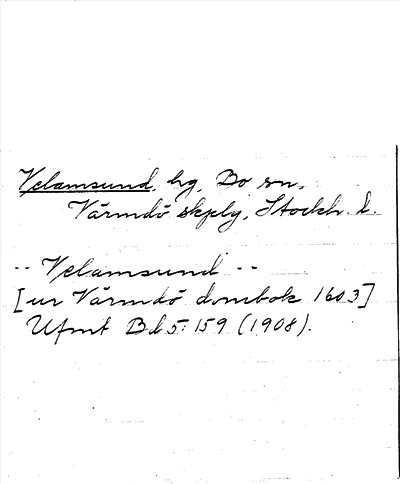 Velamsund, hg, Bo sn.
Värmdö skplg, Stockh. l.
-- Velamsund --
[ur Värmdö dombok 1603]
Ufmt Bd 5: 159 (1908).